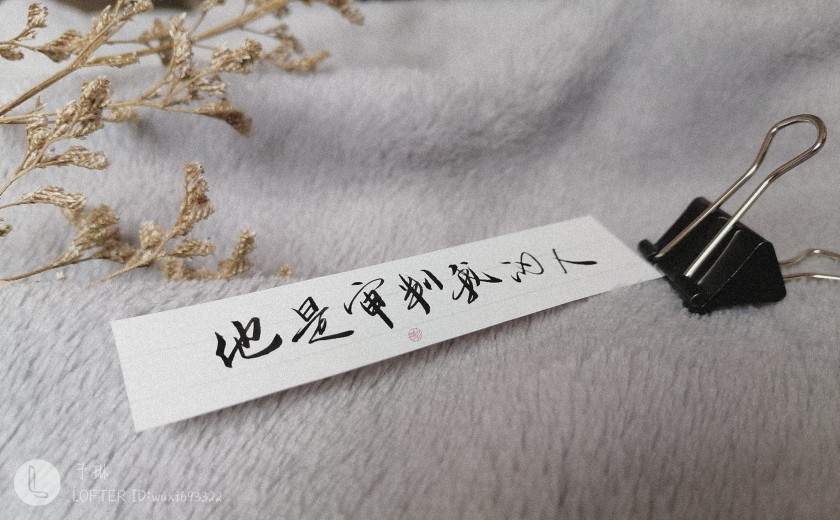 他是审判我的人
LOFTER ID:wuxi69332a